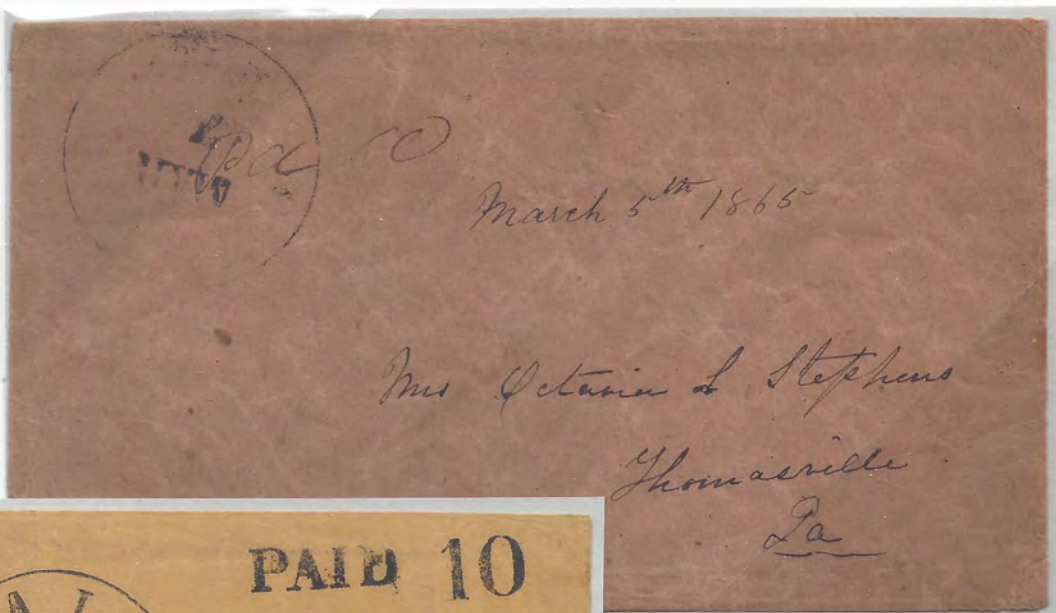 Pd 10
March 5th 1865
Mrs Octavia L Stephens
Thomasville
Ga
PAID 10